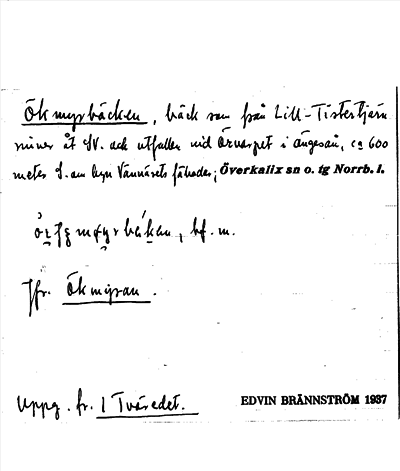 Ökmyrbäcken, bäck som från Lill-Tistertjärn
rinner åt SV. och utfaller vid Örvarpet i Ängesån, ca 600
meter S. om byn Vännäsets fäbodar; Överkalix sn o. tg Norrb. l.
bf. m.
Jfr. Ökmyran.
Uppg. fr. 1 Tväredet.
EDVIN BRÄNNSTRÖM 1937